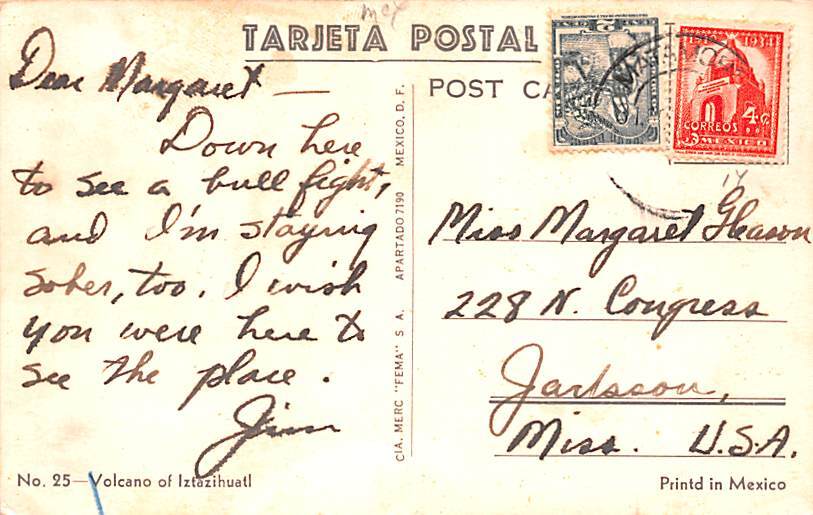 mex
TARJETA POSTAL
POST CA
Dear Margaret —
Down here
to see a bull fight,
and I'm staying
sober, too. I wish
you were here to
see the place.
Jim
CIA. MERC "FEMA" S A. APARTADO 7190 MEXICO, D. F.
2
1934
4 c.
CORREOS
MEXICO
14
Miss Margaret Gleason
228 N. Congress
Jackson,
Miss. U.S.A.
No. 25—Volcano of Iztazihuatl
Printd in Mexico